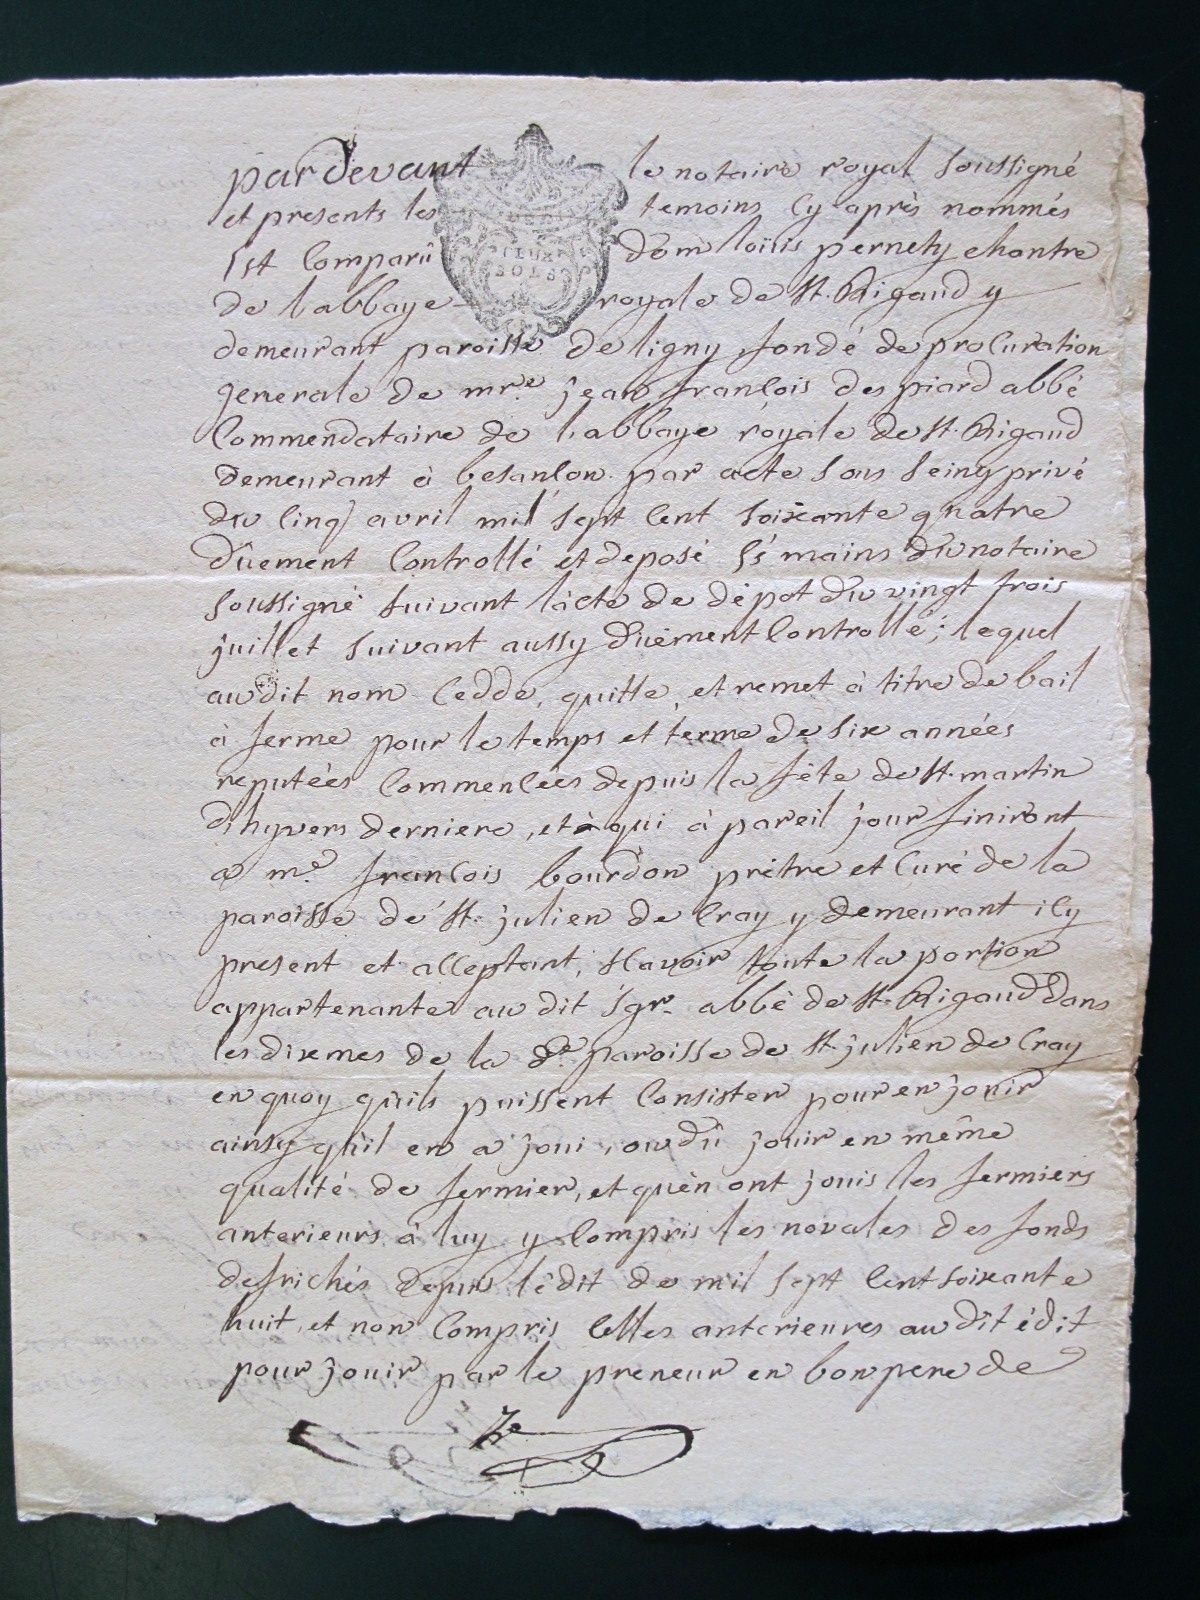 pardevant le notaire royal soussigné
et presents les temoins cy après nommés
Est comparû dom loüis pernety chantre
de labbaye royale de St. Rigaud y
demeurant paroisse de ligny, fondé de procuration
generale de mre. jean françois des piard abbé
commendataire de l'abbaye royale de St. Rigaud
demeurant à besançon par acte sous seing privé
du cinq avril mil sept cent soixante quatre
dûement controllé et deposé ès mains du notaire
soussigné suivant lácte de dépot du vingt trois
juillet suivant aussy dûement controllé; lequel
au dit nom cedde, quitte, et remet à titre de bail
à ferme pour le temps et terme de six années
reputées commencées depuis la fête de St. martin
dhyvers derniere, et à qui à pareil jour finiront
a me. françois bourdon prêtre et curé de la
paroisse de St. julien de cray y demeurant icy
present et acceptant, scavoir toute la portion
appartenante au dit sgr. abbé de St. Rigaud dans
les dixmes de la de. paroisse de St. julien de cray
en quoy quils puissent consister pour en jouir
ainsy quil en a joui, ou dû jouir en même
qualité de fermier, et quèn ont jouis les fermiers
anterieurs à luy y compris les novales des fonds
defrichés depuis lédit de mil sept cent soixante
huit, et non compris celles anterieures au dit édit
pour jouir par le preneur en bon pere de
DEUX
SOLS